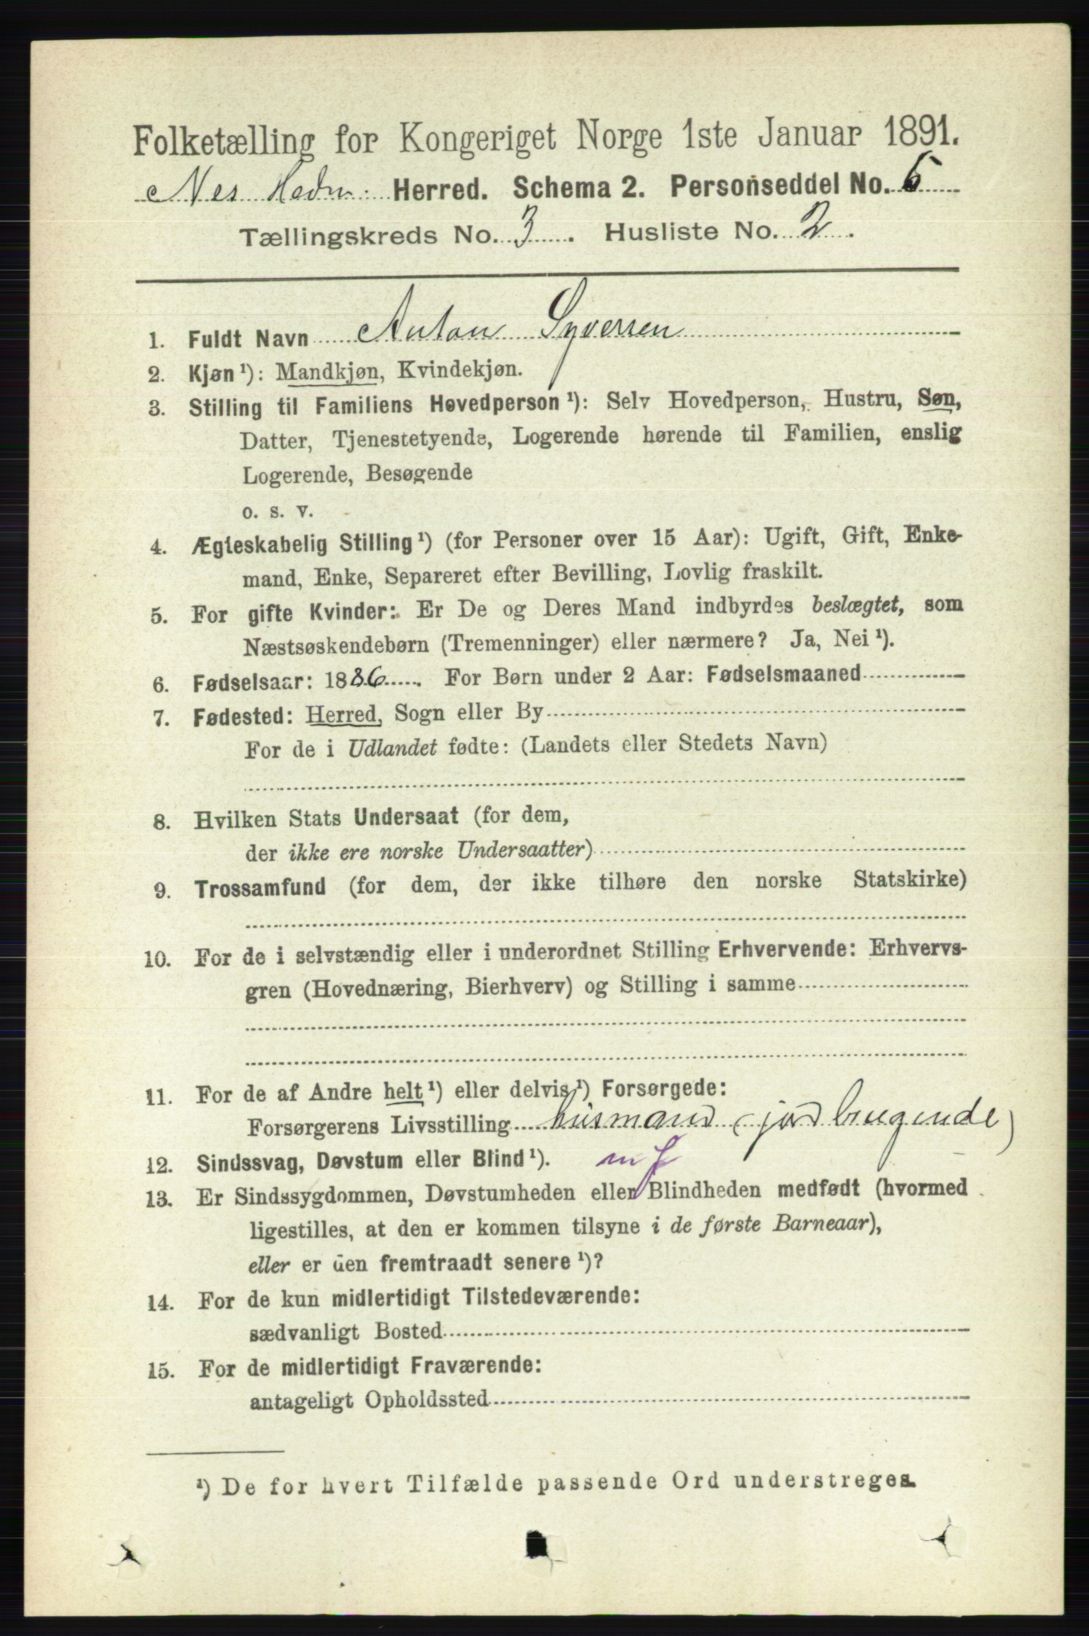 Folketælling for Kongeriget Norge 1ste Januar 1891.
Nes Hedm. Herred. Schema 2. Personseddel No. 6
Tællingskreds No. 3. Husliste No. 2.
1. Fuldt Navn Anton Syversen
2. Kjøn ¹): Mandkjøn, Kvindekjøn.
3. Stilling til Familiens Hovedperson ¹): Selv Hovedperson, Hustru, Søn,
Datter, Tjenestetyende, Logerende hørende til Familien, enslig
Logerende, Besøgende
o. s. v.
4. Ægteskabelig Stilling ¹) (for Personer over 15 Aar): Ugift, Gift, Enke-
mand, Enke, Separeret efter Bevilling, Lovlig fraskilt.
5. For gifte Kvinder: Er De og Deres Mand indbyrdes beslægtet, som
Næstsøskendebørn (Tremenninger) eller nærmere? Ja, Nei ¹).
6. Fødselsaar: 1886. For Børn under 2 Aar: Fødselsmaaned
7. Fødested: Herred, Sogn eller By
For de i Udlandet fødte: (Landets eller Stedets Navn)
8. Hvilken Stats Undersaat (for dem,
der ikke ere norske Undersaatter)
9. Trossamfund (for dem, der ikke tilhøre den norske Statskirke)
10. For de i selvstændig eller i underordnet Stilling Erhvervende: Erhvervs-
gren (Hovednæring, Bierhverv) og Stilling i samme
11. For de af Andre helt ¹) eller delvis ¹) Forsørgede:
Forsørgerens Livsstilling husmand (jordbrugende)
12. Sindssvag, Døvstum eller Blind ¹). mf
13. Er Sindssygdommen, Døvstumheden eller Blindheden medfødt (hvormed
ligestilles, at den er kommen tilsyne i de første Barneaar),
eller er den fremtraadt senere ¹)?
14. For de kun midlertidigt Tilstedeværende:
sædvanligt Bosted
15. For de midlertidigt Fraværende:
antageligt Opholdssted
¹) De for hvert Tilfælde passende Ord understreges.